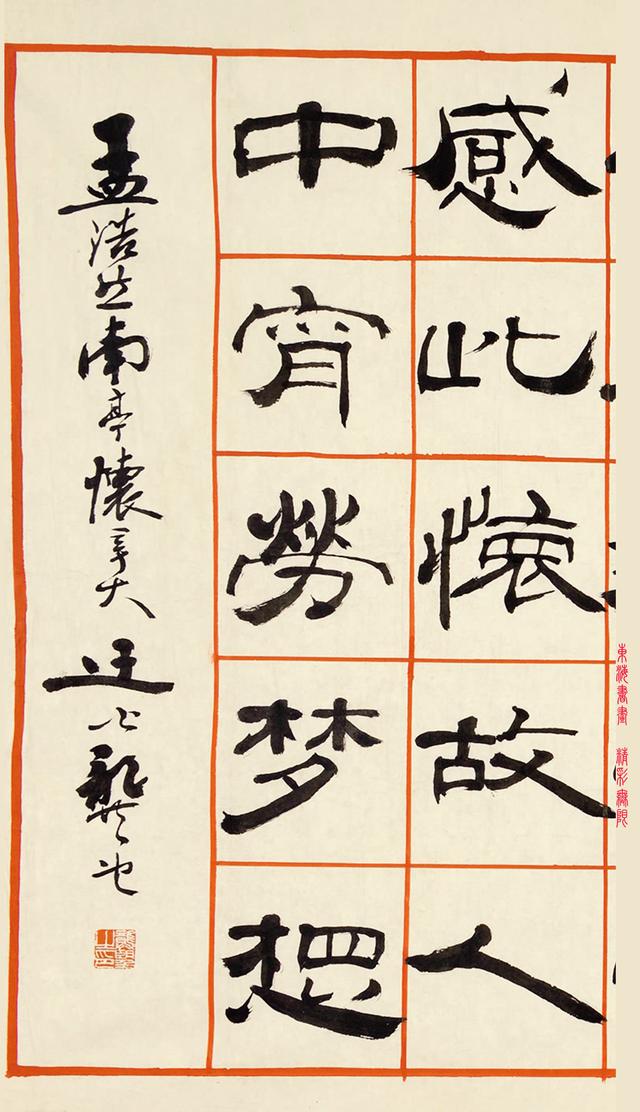 感此懷故人
中宵勞梦想
孟浩然南亭懷辛大
東海書畫 精彩無限